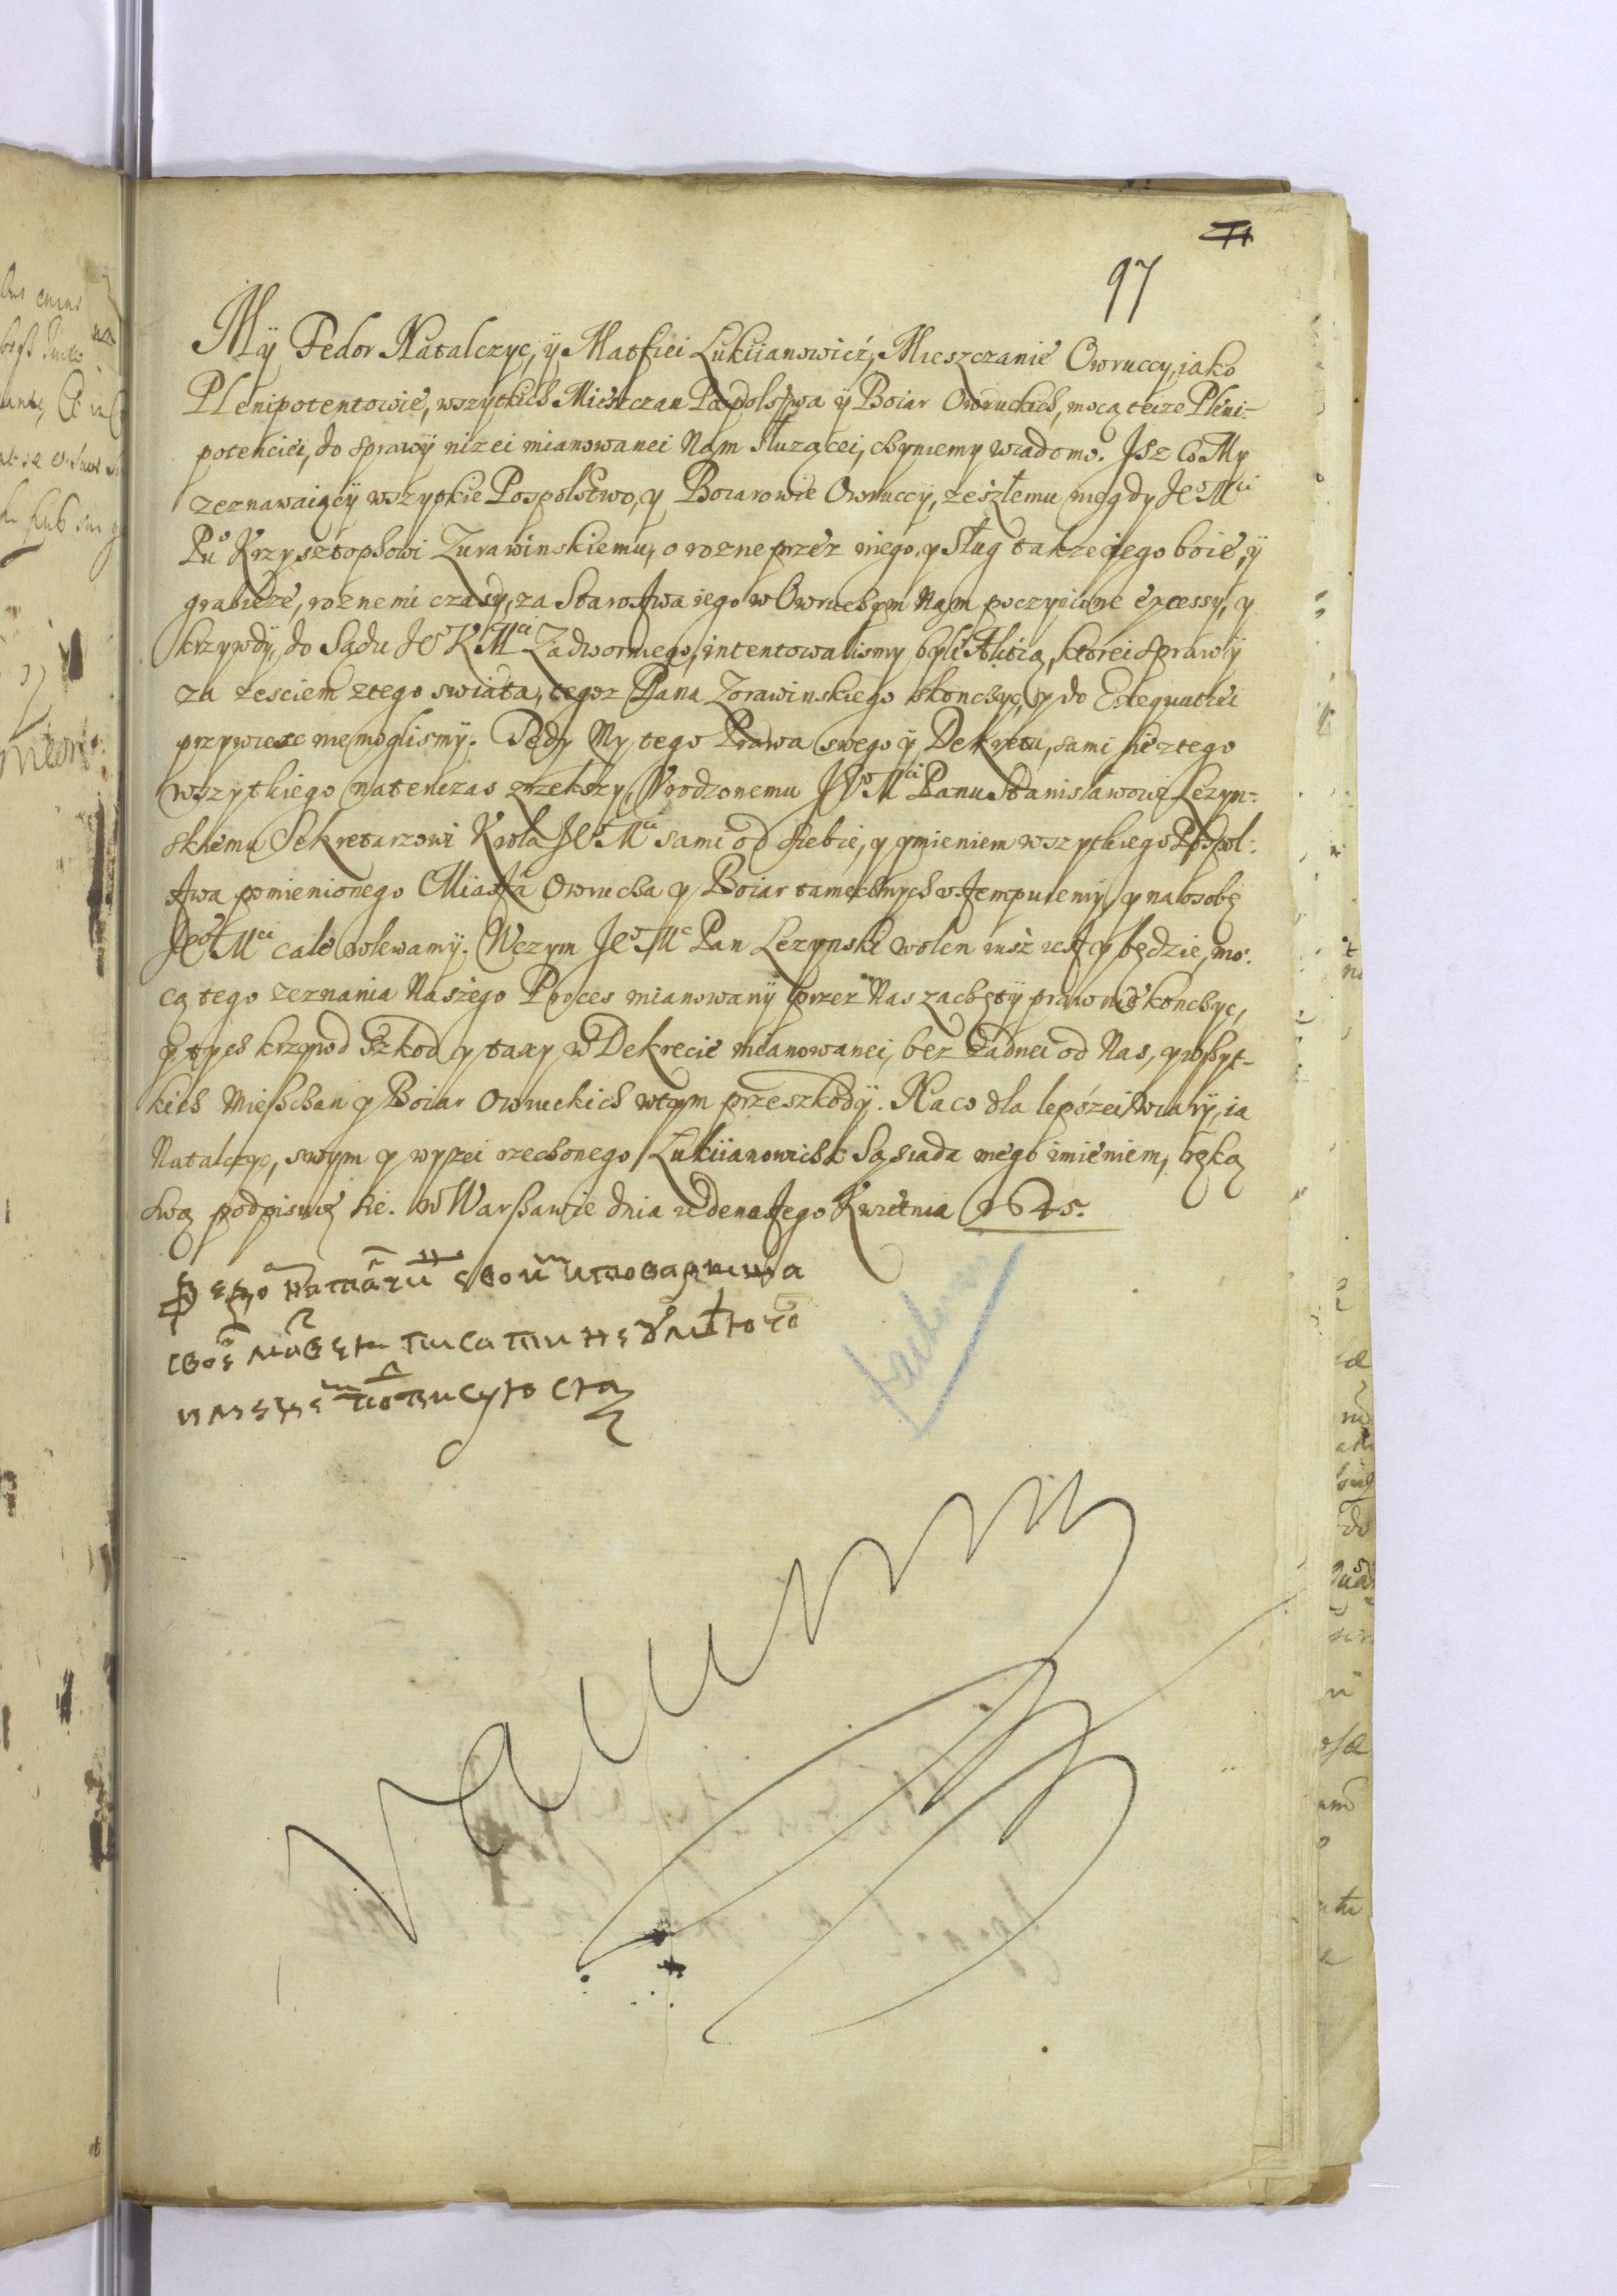 97
Mÿ Fedor Natalczyc, ÿ Matfiei Lukiianowicż, Mieszczanie Owruccy, iako
Plenipotentowie, wszytkich Mieszczan Pospolstwa ÿ Boiar Owruckich, mocą teize Pleni-
potenciei, do sprawÿ nizei mianowanei Nam służącei, chynemy wiadomo. Jsz co My
zeznawaiącÿ wszytkie Pospolstwo, y Boiarowie Owruccÿ, zeszłemu niegdy Je° Mci
Pu° Krzysztophowi Zurawinskiemu, o rozne przez niego, y sług także iego boie, ÿ
grabieże, roznemi czasy, za Starostwa iego w Owruchym Nam poczynione excessy, y
krzywdÿ, do Sądu Je° K Mci Zadwornego, intentowalismy byli Aktią, ktorei sprawÿ
za zesciem z tego swiata, tegoz Pana Zorawinskiego skonchyc, y do Exequutiei
przywiesc niemoglismÿ. Tedy My tego Prawa swego ÿ Dekretu, sami sie z tego
wszytkiego natenczas zrzekszy, Urodzonemu Je° Mci Panu Stanisławowi Lezyn-
skiemu Sekretarzowi Krola Je° Mci sami od siebie, y ymieniem wszytkiego Pospol-
stwa pomienionego Miasta Owrucha y Boiar tamechnych wstempuiemy, y na osobę
Je° Mci cale wlewamÿ. W czym Je° Mc Pan Lezynski wolen iusz iest y będzie, mo-
cą tego zeznania Naszego Proces mianowanÿ przez Nas zachętÿ prawnie konchyc,
y tych krzywd szkod y taxy w Dekrecie mianowanei, bez żadnei od Nas, y wszyt-
kich Miesschan y Boiar Owruckich w tym przeszkodÿ. Na co dla lepszei wiarÿ, ia
Natalczyc, swym y wyszei rzechonego Lukiianowicha Sąsiada mego imieniem, ręką
swą podpisuię sie. W Warszawie dnia iedenastego Kwietnia 1645.
писати не умѣючо
Vacuum